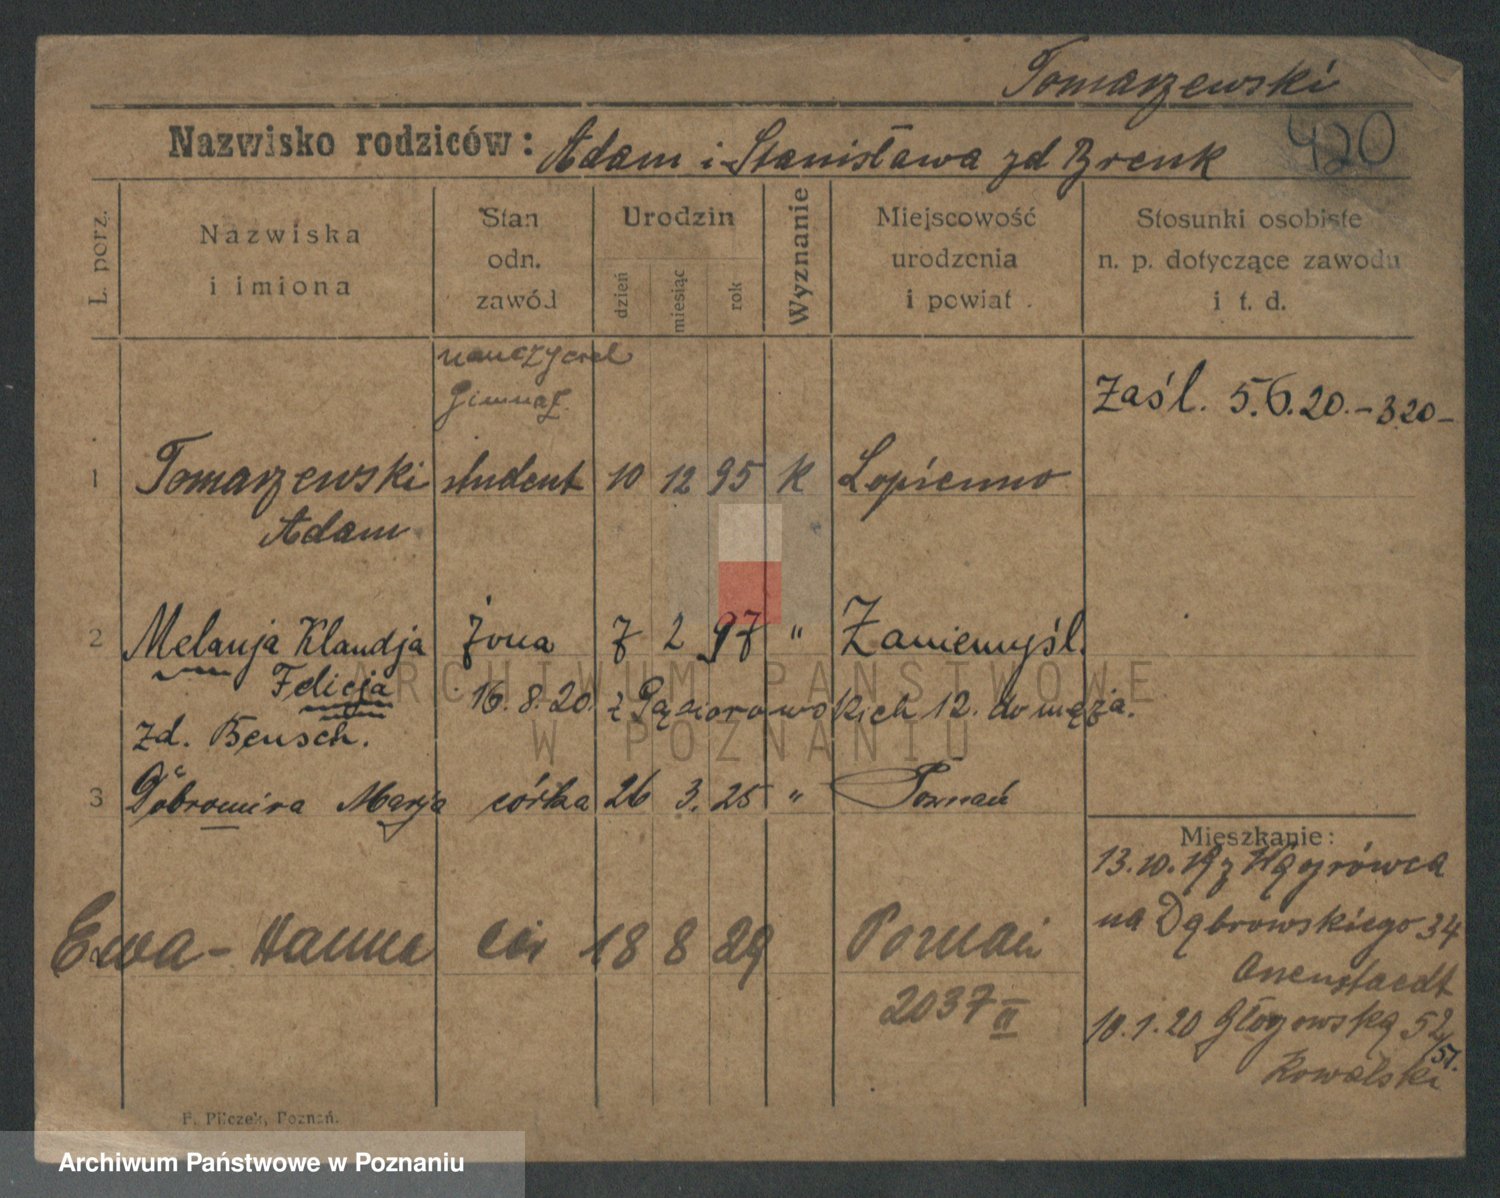 Tomarzewski
Nazwisko rodziców: Adam i Stanisława zd Brenk
420
L. porz.
Nazwiska
i imiona
Stan
odn.
zawód
Urodzin
dzień
miesiąc
rok
Wyznanie
Miejscowość
urodzenia
i powiat
Stosunki osobiste
n. p. dotyczące zawodu
i t. d.
nauczyciel
Gimnaz.
Zaśl. 5.6.20. - 320 -
1 Tomarzewski student 10 12 95 k Lopienno
Adam
2 Melanja Klaudja żona 7 2 97 " Zaniemyśl.
Felicja
16.8.20. z Gąsiorowskich 12. do męża.
zd. Bensch.
3 Dobromira Marja córka 26 3. 25 " Poznań
Mieszkanie:
13.10.19 z Wągrówca
na Dąbrowskiego 34
Ewa - Hanna 18 8 29 Poznań
2037 II
10.1.20 Głogowska 52
Kowalski
F. Pilczek, Poznań.
ARCHIWUM PAŃSTWOWE
W POZNANIU
Archiwum Państwowe w Poznaniu